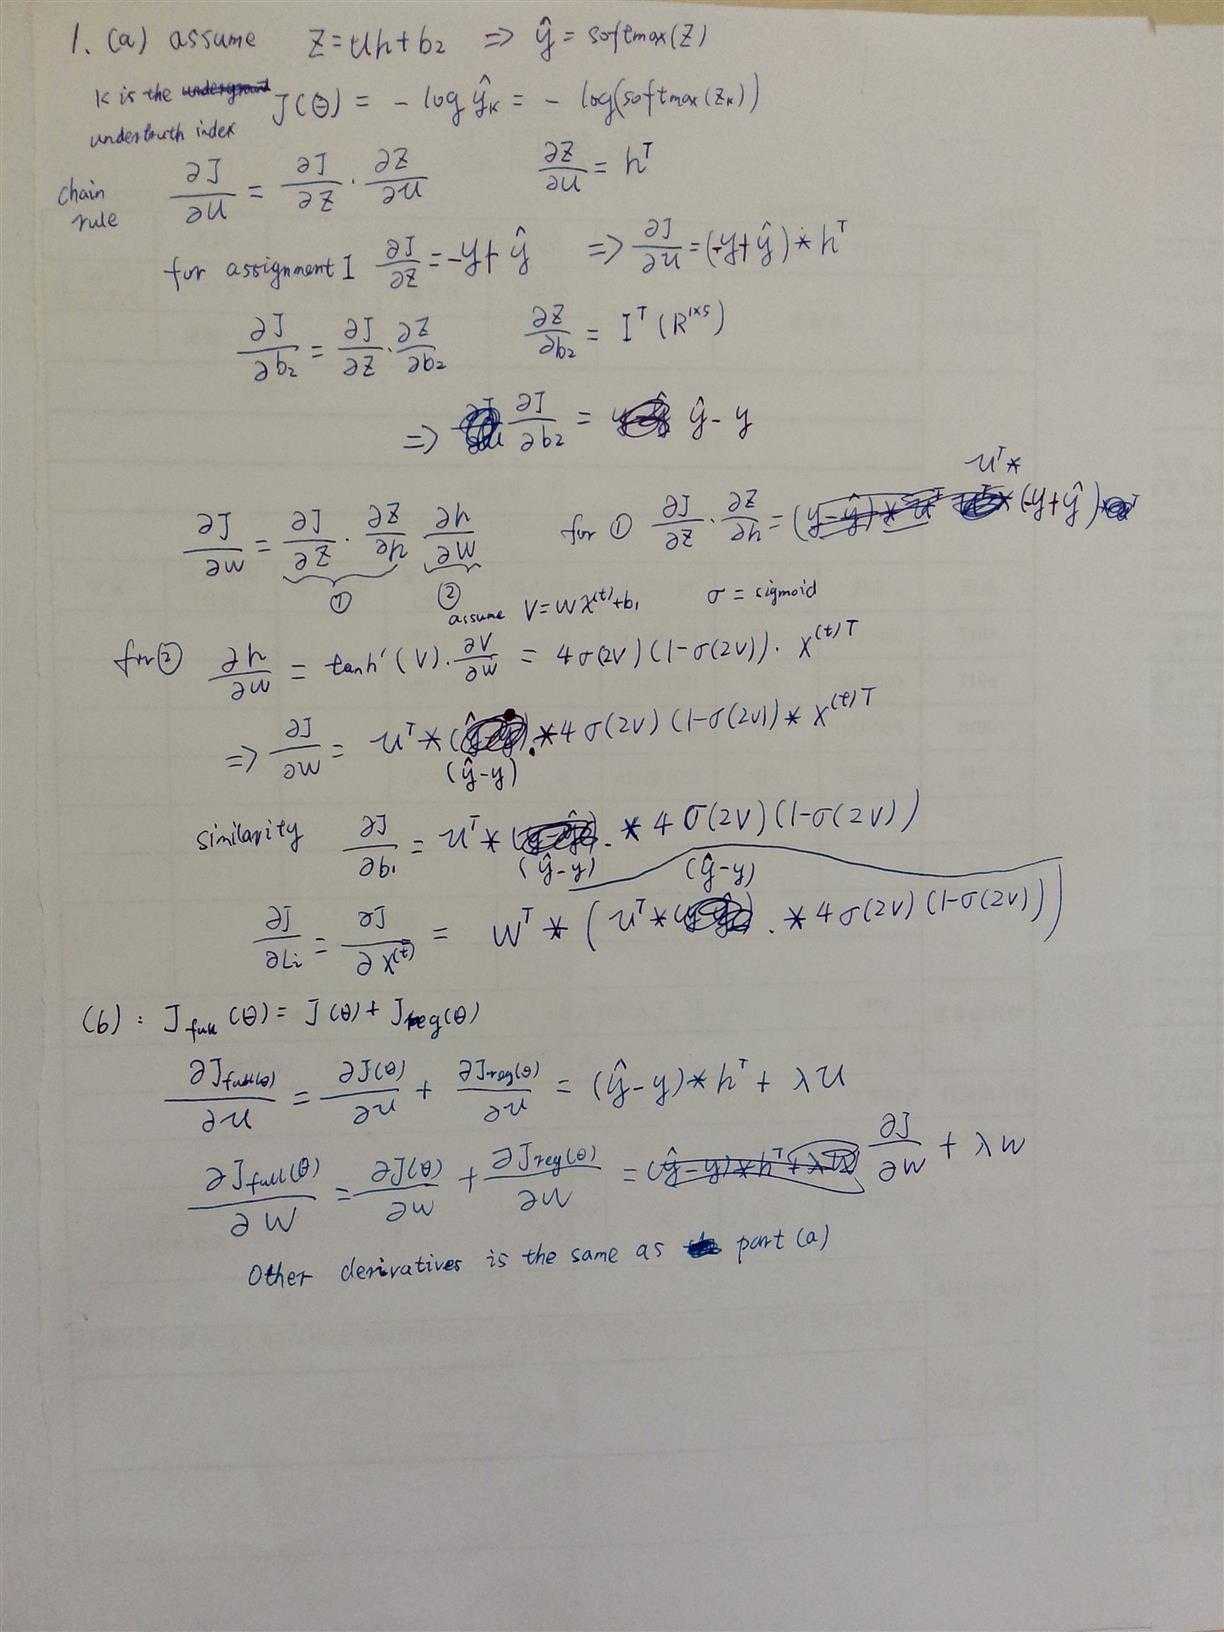 1. (a) assume Z = Uh + b₂ ⇒ ŷ = softmax(Z)
K is the J(θ) = - log ŷₖ = - log(softmax(Zₖ))
undertruth index
chain rule ∂J/∂U = ∂J/∂Z · ∂Z/∂U ∂Z/∂U = hᵀ
for assignment I ∂J/∂Z = -y + ŷ ⇒ ∂J/∂U = (-y + ŷ) * hᵀ
∂J/∂b₂ = ∂J/∂Z · ∂Z/∂b₂ ∂Z/∂b₂ = Iᵀ (R¹ˣ⁵)
⇒ ∂J/∂b₂ = ŷ - y
∂J/∂W = ∂J/∂Z · ∂Z/∂h ∂h/∂W for ① ∂J/∂Z · ∂Z/∂h = Uᵀ * (-y + ŷ)
① ② assume V = WX⁽ᵗ⁾ + b₁ σ = sigmoid
for ② ∂h/∂W = tanh'(V) · ∂V/∂W = 4σ(2V)(1-σ(2V)) · X⁽ᵗ⁾ᵀ
⇒ ∂J/∂W = Uᵀ * (ŷ-y) .* 4σ(2V)(1-σ(2V)) * X⁽ᵗ⁾ᵀ
similarity ∂J/∂b₁ = Uᵀ * (ŷ-y) .* 4σ(2V)(1-σ(2V))
∂J/∂Li = ∂J/∂X⁽ᵗ⁾ = Wᵀ * (Uᵀ * (ŷ-y) .* 4σ(2V)(1-σ(2V)))
(b) : J full (θ) = J(θ) + Jreg(θ)
∂Jfull(θ)/∂U = ∂J(θ)/∂U + ∂Jreg(θ)/∂U = (ŷ-y) * hᵀ + λU
∂Jfull(θ)/∂W = ∂J(θ)/∂W + ∂Jreg(θ)/∂W = ∂J/∂W + λW
Other derivatives is the same as part (a)